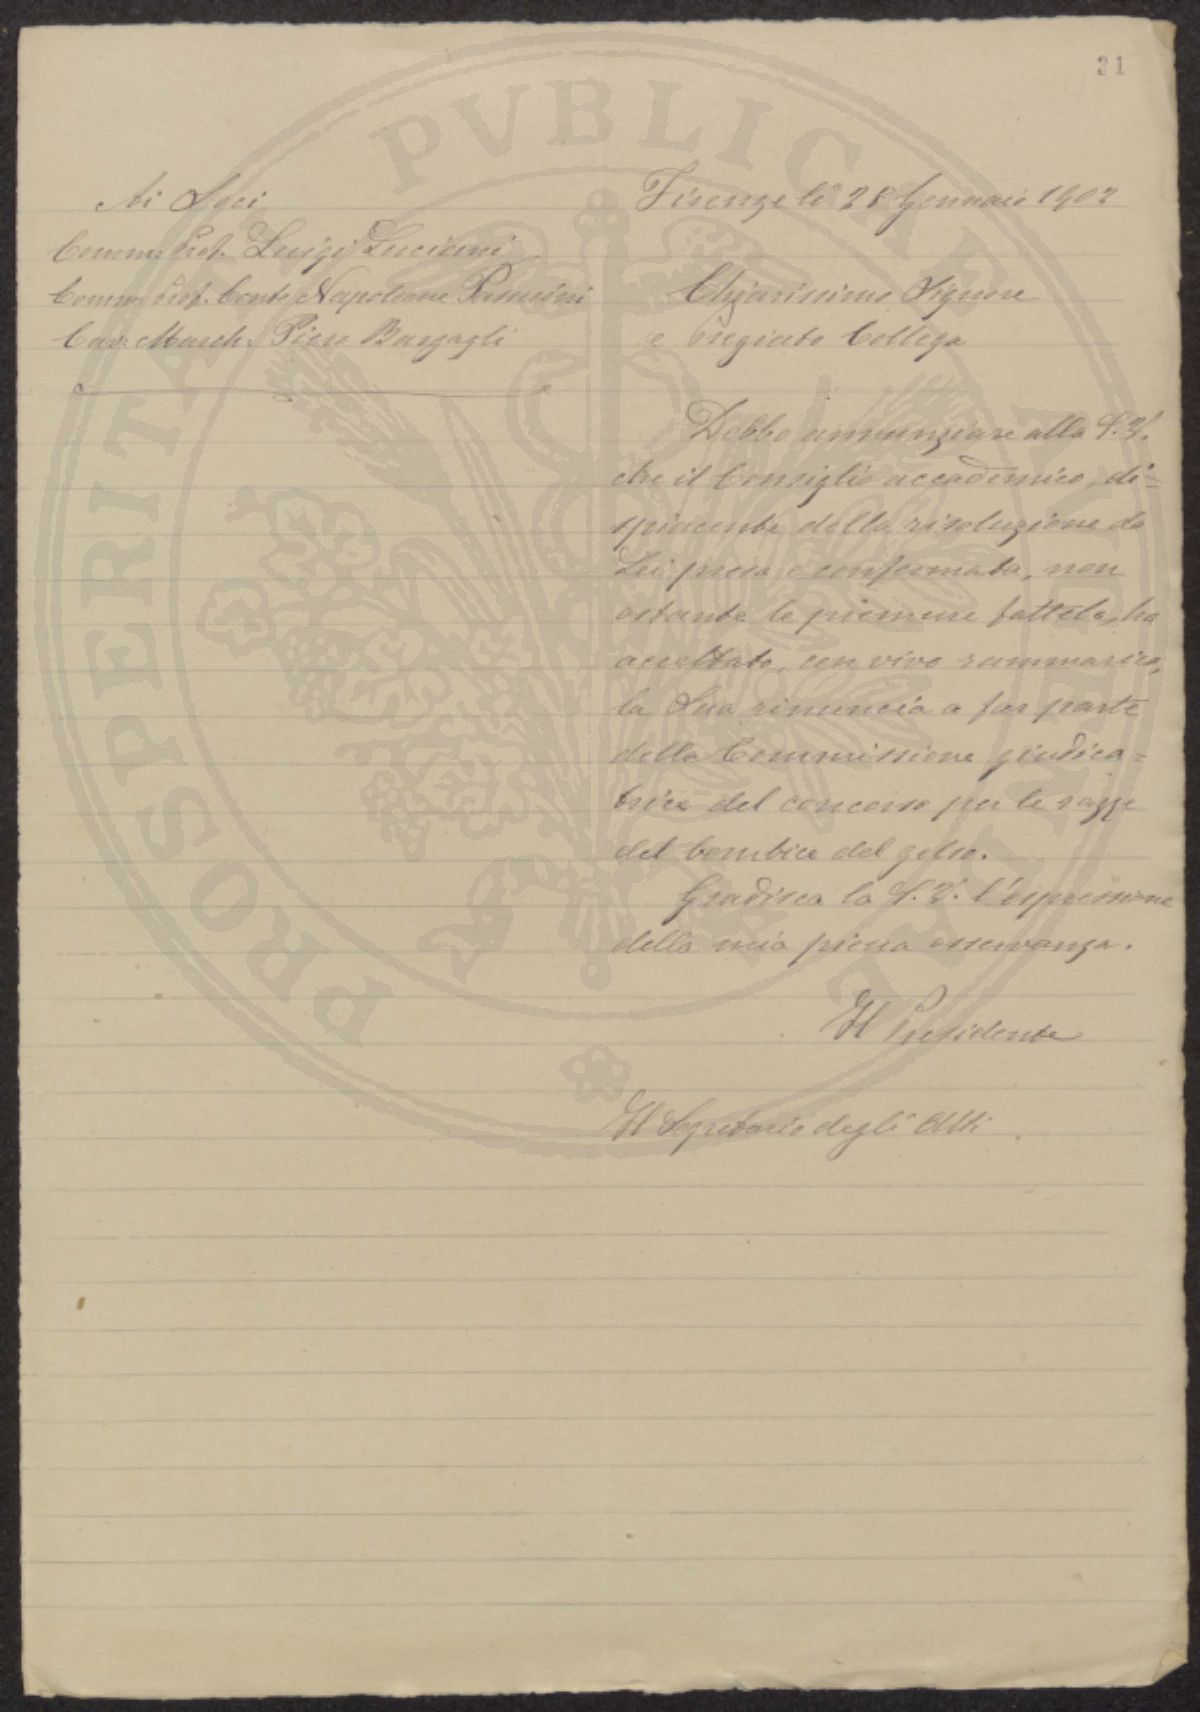 31
Ai Soci
Comm. Prof. Luigi Luciani
Comm. Prof. Conte Napoleone Passerini
Cav. March. Piero Bargagli
Firenze li 28 Gennaio 1902
Chiarissimo Signore
e Pregiato Collega
Debbo annunziare alla S. V.
che il Consiglio accademico, di=
spiacente della risoluzione da
Lei presa e confermata, non
ostante le premure fattele, ha
accettato, con vivo rammarico,
la Sua rinuncia a far parte
della Commissione giudica=
trice del concorso per le razze
del bombice del gelso.
Gradisca la S. V. l'espressione
della mia piena osservanza.
Il Presidente
Il Segretario degli Atti
PROSPERITATI PVBLICAE AVGENDAE